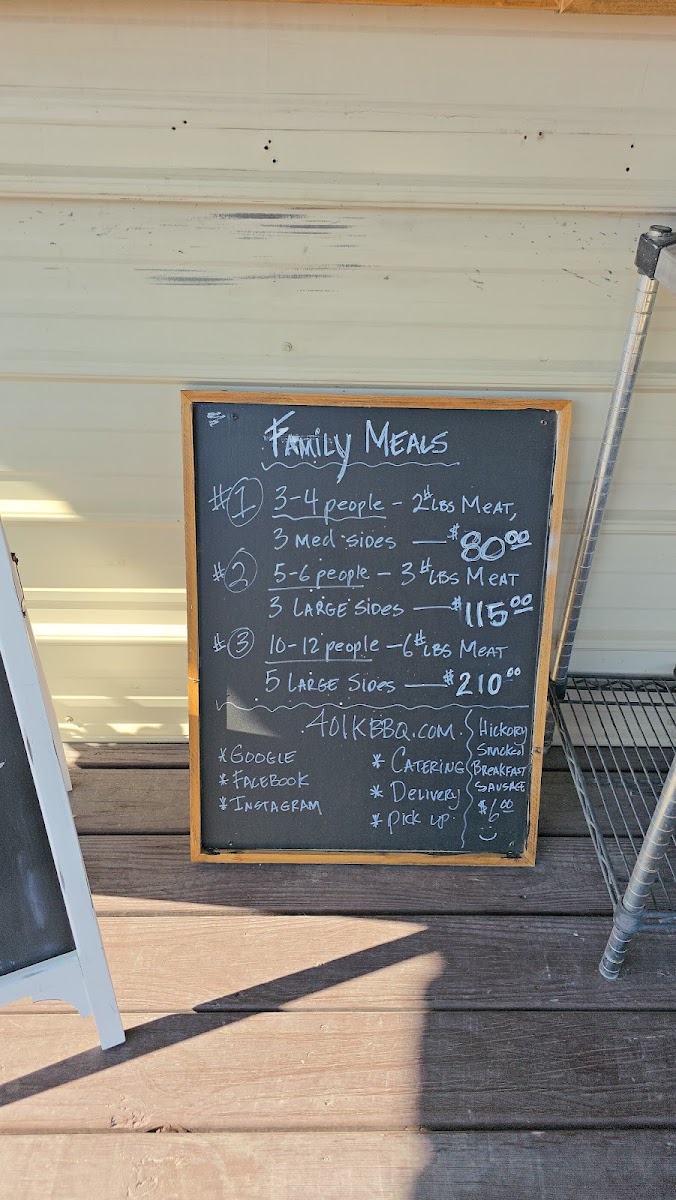 Family Meals
#1 3-4 people - 2# LBS Meat,
3 med sides — $80.00
#2 5-6 people - 3# LBS Meat
3 Large Sides — $115.00
#3 10-12 people - 6# LBS Meat
5 Large Sides — $210.00
401KBBQ.COM
* Google
* Facebook
* Instagram
* Catering
* Delivery
* Pick up
Hickory
Smoked
Breakfast
Sausage
$6.00